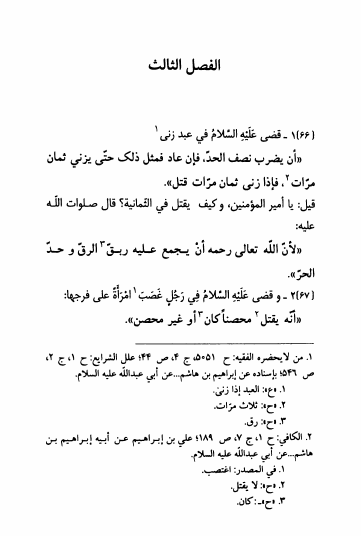 الفصل الثالث
(٦٦)١ ـ قضى عَلَيْهِ السَّلامُ في عبد زنى١
«أن يضرب نصف الحدّ، فإن عاد فمثل ذلك حتّى يزني ثمان
مرّات٢، فإذا زنى ثمان مرّات قتل».
قيل: يا أمير المؤمنين، وكيف يقتل في الثّمانية؟ قال صلوات اللّه
عليه:
«لأنّ اللّه تعالى رحمه أنْ يجمع عليه ربق٣ الرقّ و حدّ
الحرّ».
(٦٧)٢ ـ و قضى عَلَيْهِ السَّلامُ فِي رَجُلٍ غَصَبَ١ امْرَأَةً على فرجها:
«أنّه يقتل٢ محصناً كان٣ أو غير محصن».
١. من لايحضره الفقيه: ح ٥٠٥١، ج ٤، ص ٤٤؛ علل الشرايع: ح ١، ج ٢،
ص ٥٤٦؛ بإسناده عن إبراهيم بن هاشم...عن أبي عبداللّه عليه السلام.
١. «ع»: العبد إذا زنىٰ.
٢. «ح»: ثلاث مرّات.
٣. «ح»: رق.
٢. الكافي: ح ١، ج ٧، ص ١٨٩؛ علي بن إبراهيم عن أبيه إبراهيم بن
هاشم...عن أبي عبداللّه عليه السلام.
١. في المصدر: اغتصب.
٢. «ح»: لا يقتل.
٣. «ح»ـ: كان.